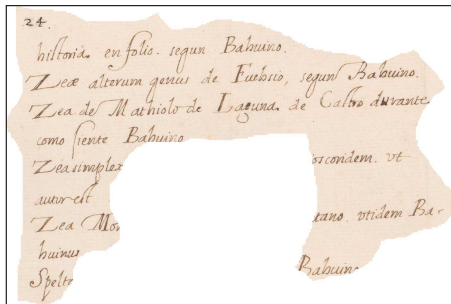 24.
historia en folio. segun Bahuino.
Zeæ alterum genus de Fuchsio, segun Bahuino.
Zea de Mathiolo de Laguna de Castro durante
como siente Bahuino
Zea simplex oscondem. vt
autur est
Zea Mon tano. vtidem Ba-
huinus Bahuin
Spelt